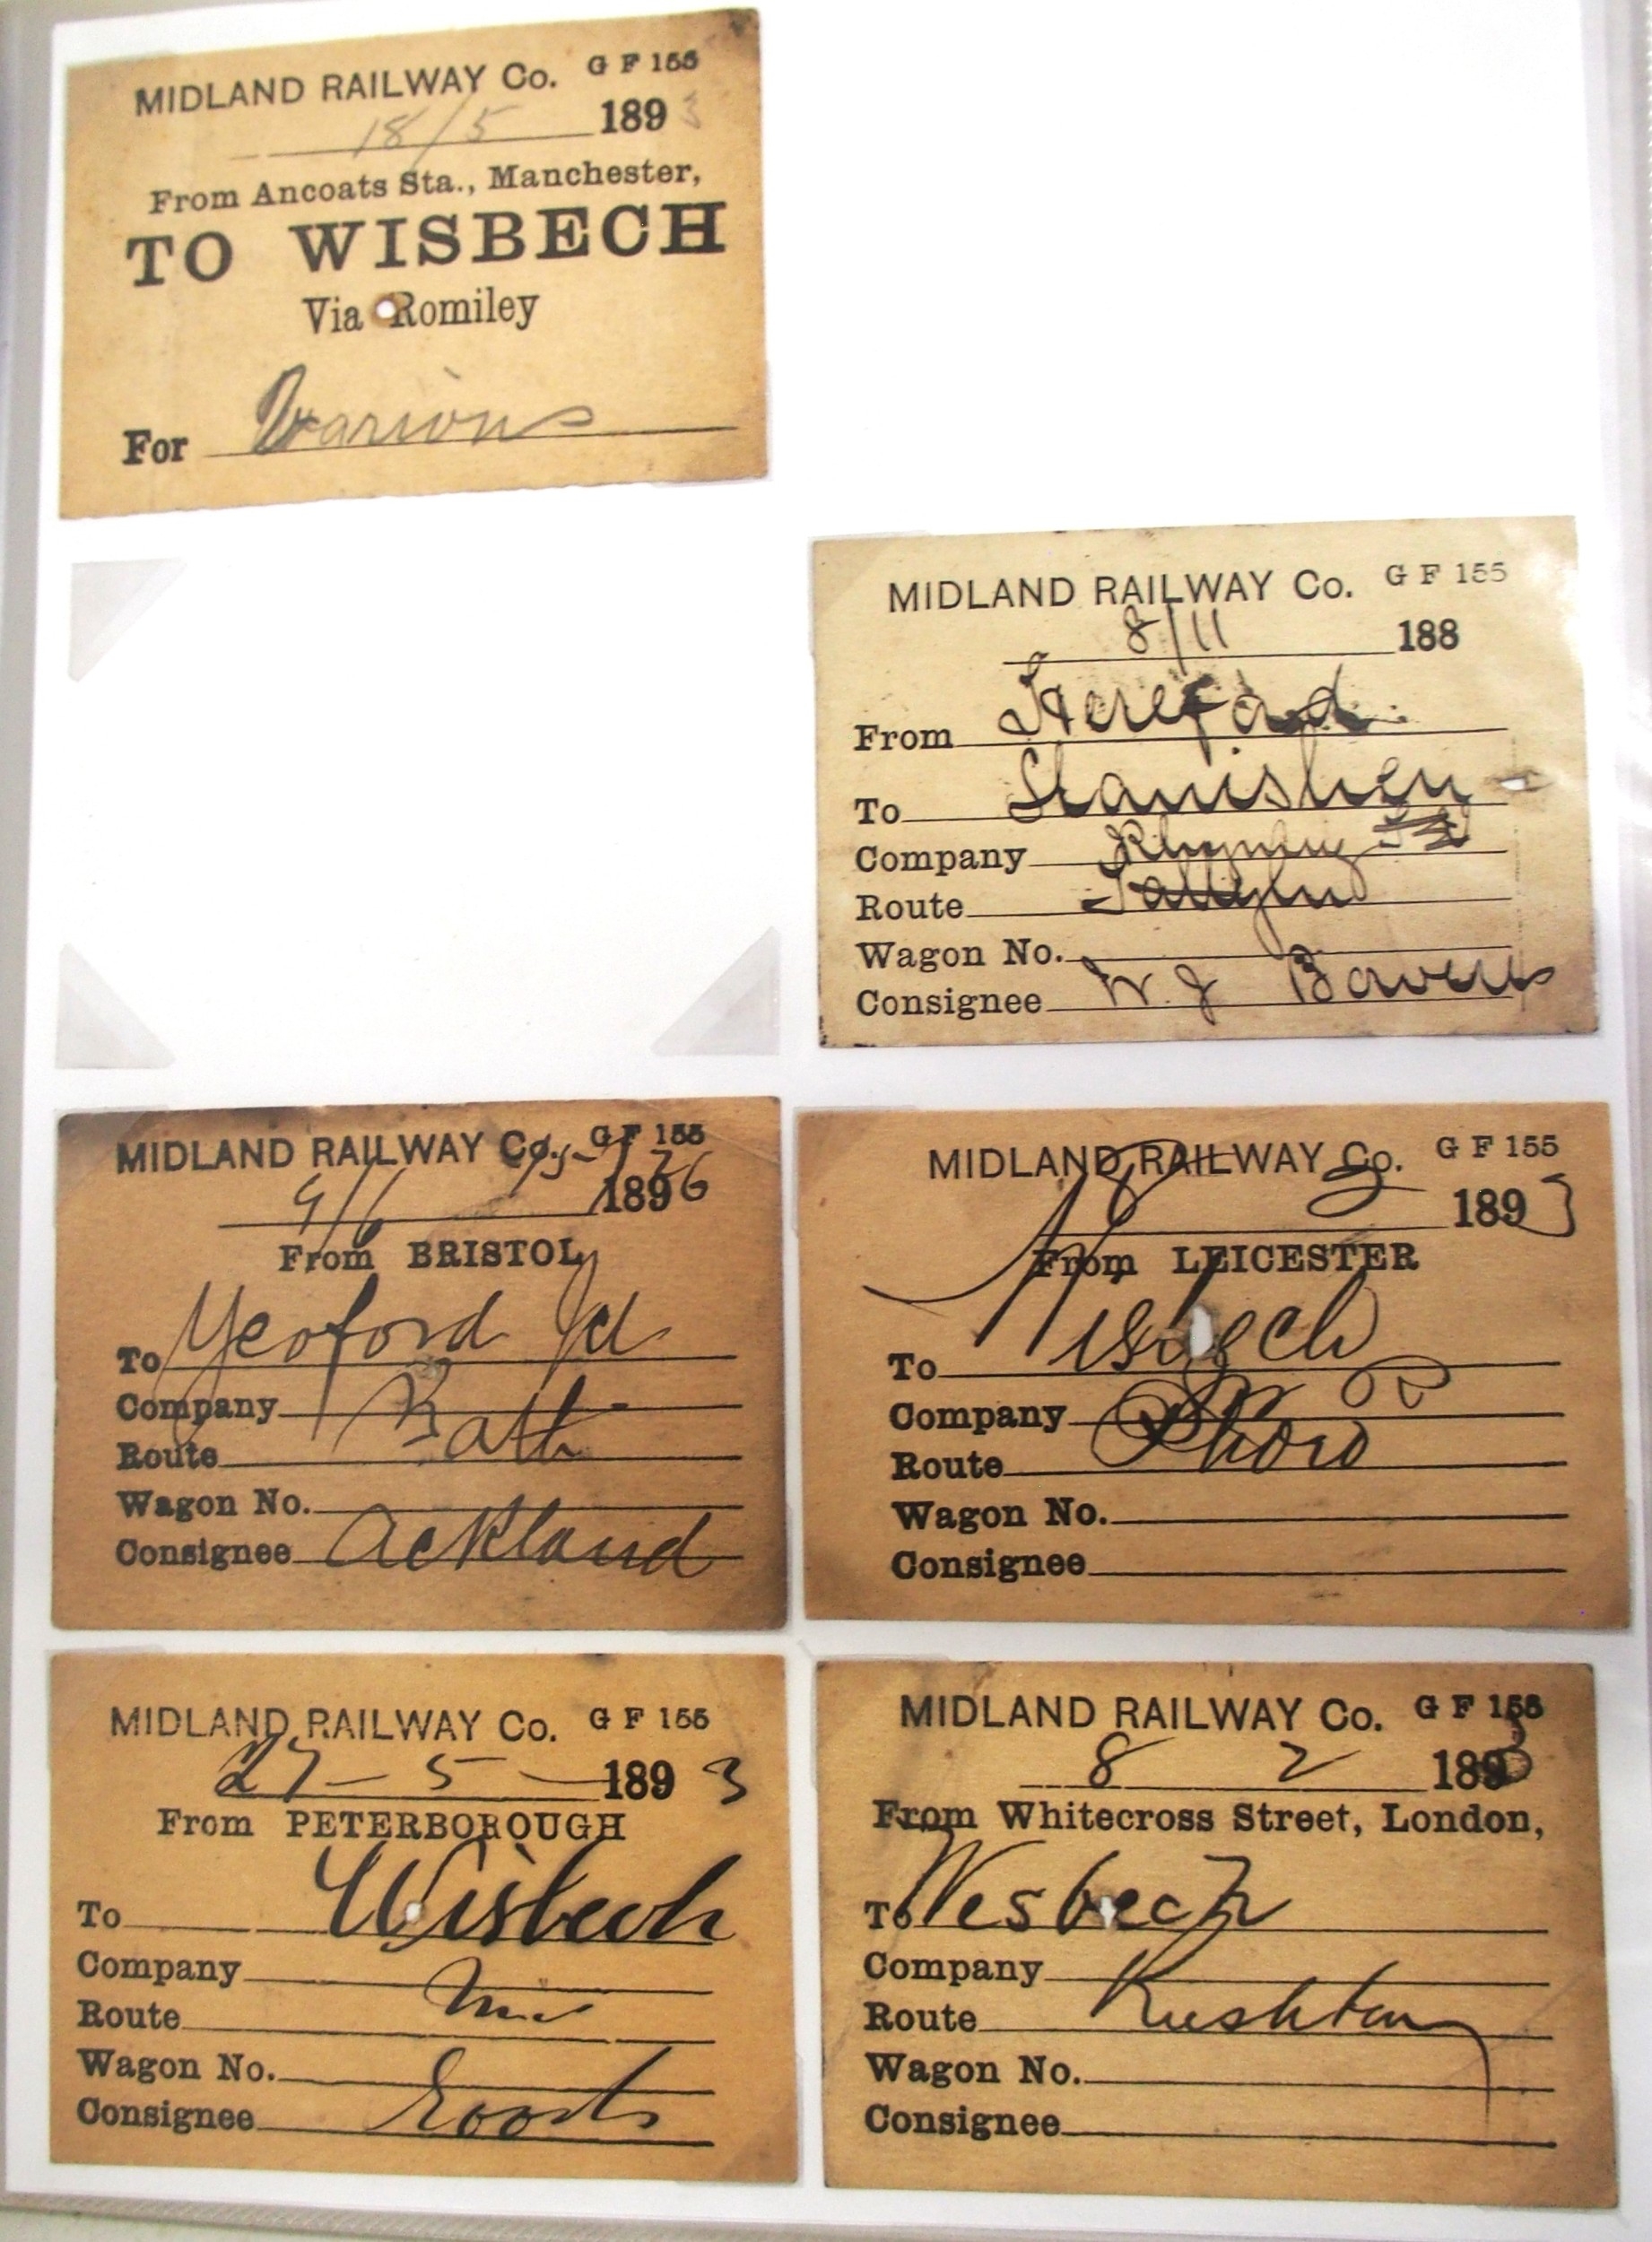 MIDLAND RAILWAY Co. G F 155
18/5 1893
From Ancoats Sta., Manchester,
TO WISBECH
Via Romiley
For Various
MIDLAND RAILWAY Co. G F 155
8/11 188
From Hereford
To
Company Rhymney
Route
Wagon No.
Consignee W. J Bowens
MIDLAND RAILWAY Co. G F 155
9/6 1896
From BRISTOL
To Yeoford
Company
Route Bath
Wagon No.
Consignee Ackland
MIDLAND RAILWAY Co. G F 155
1893
From LEICESTER
To Wisbech
Company
Route
Wagon No.
Consignee
MIDLAND RAILWAY Co. G F 155
27 - 5 - 1893
From PETERBOROUGH
To Wisbech
Company
Route
Wagon No.
Consignee Goods
MIDLAND RAILWAY Co. G F 155
8 2 1893
From Whitecross Street, London,
To Wesbech
Company
Route Rushton
Wagon No.
Consignee